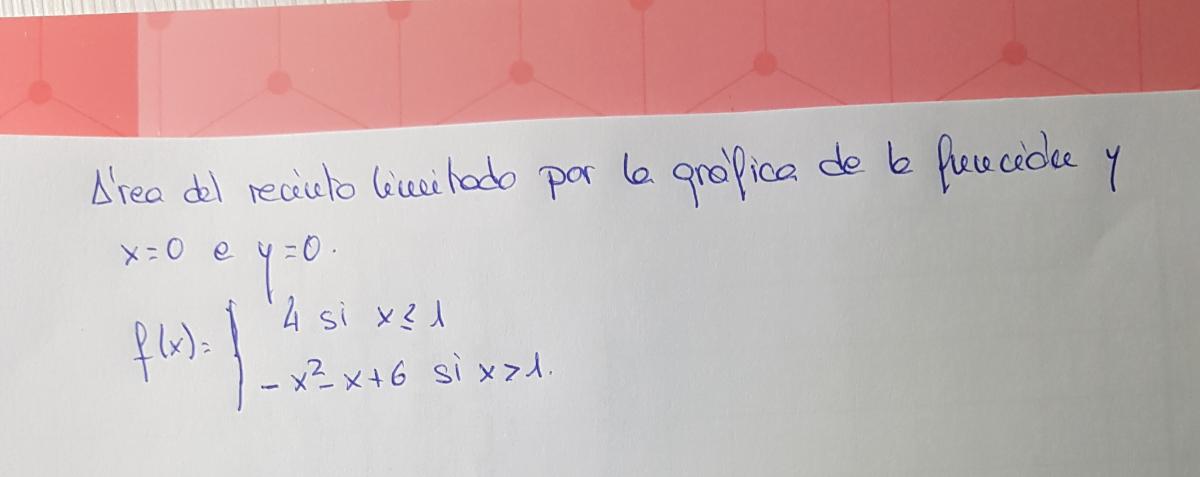 Área del recinto limitado por la gráfica de la función y
x=0 e y=0.
f(x)= { 4 si x ≤ 1
-x²-x+6 si x>1.